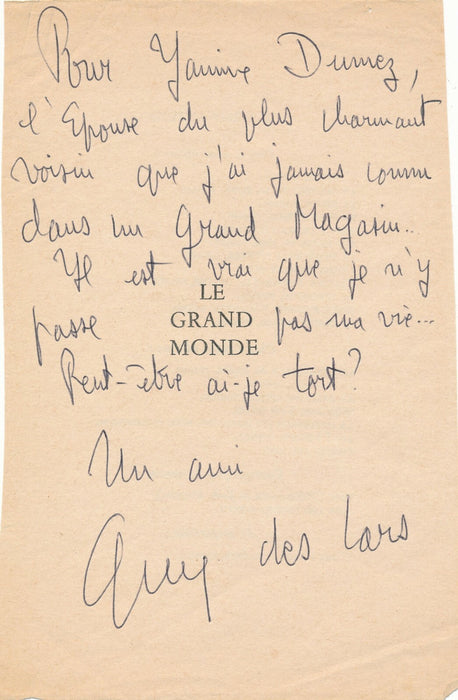 Pour Yanine Dumez,
l'Epouse du plus charmant
voisin que j'ai jamais connu
dans un Grand Magasin..
Il est vrai que je n'y
LE
GRAND
passe pas ma vie...
MONDE
Peut-être ai-je tort?
Un ami
Guy des Cars